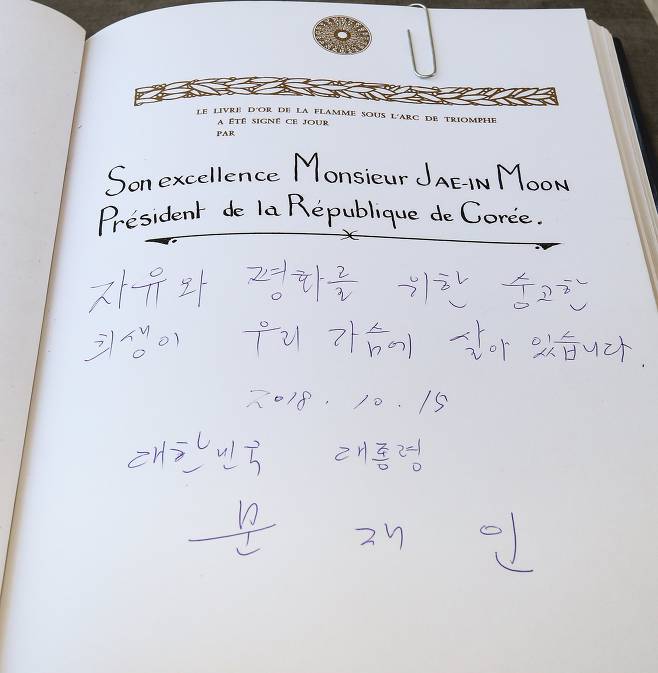 LE LIVRE D'OR DE LA FLAMME SOUS L'ARC DE TRIOMPHE
A ÉTÉ SIGNÉ CE JOUR
PAR
Son excellence Monsieur JAE-IN MOON
Président de la République de Corée.
자유와 평화를 위한 숭고한
희생이 우리 가슴에 살아 있습니다.
2018. 10. 15
대한민국 대통령
문 재 인